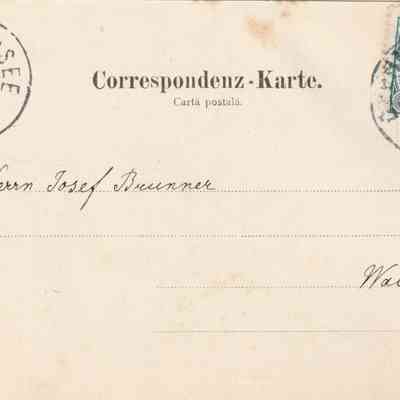 SEE
Correspondenz-Karte.
Cartă postală.
Herrn Josef Brunner